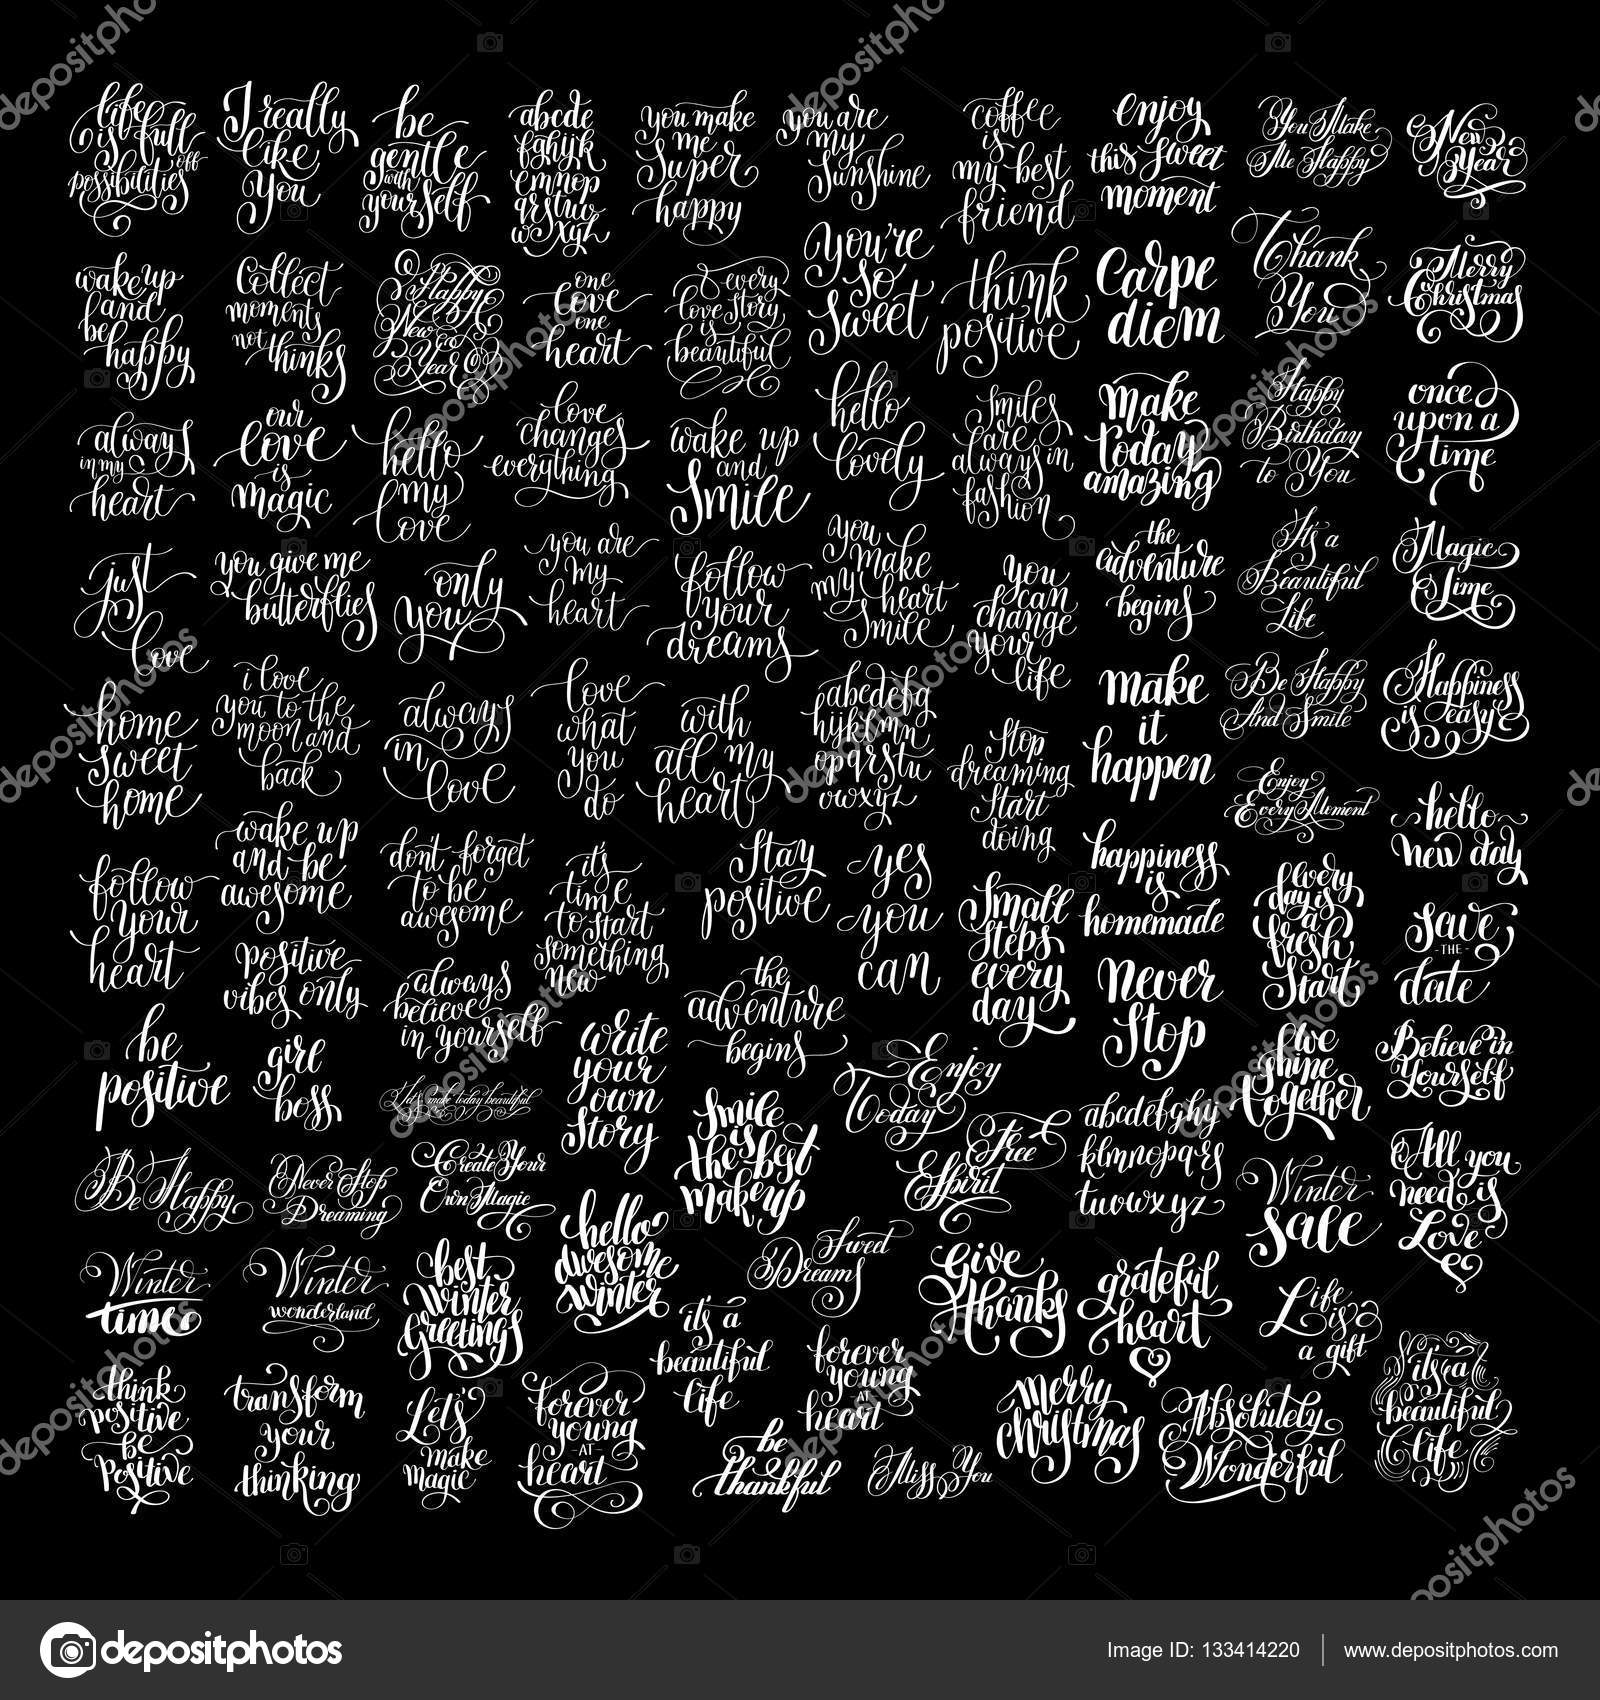 life
is full
off
possibilities
I really
like
you
be
gentle
with
yourself
abcde
fghijk
lmnop
qrstuv
wxyz
you make
me
super
happy
you are
my
sunshine
coffee
is
my best
friend
enjoy
this sweet
moment
You Make
Me Happy
New
Year
wake up
and
be
happy
collect
moments
not thinks
Happy
New
Year
one
love
one
heart
every
love story
is
beautiful
You're
so
sweet
think
positive
Carpe
diem
Thank
You
Merry
Christmas
always
in my
heart
our
love
is
magic
hello
my
love
love
changes
everything
wake up
and
smile
hello
lovely
smiles
are
always in
fashion
make
today
amazing
Happy
Birthday
to You
once
upon a
time
just
love
you give me
butterflies
only
you
you are
my
heart
follow
your
dreams
you
make
my heart
smile
you
can
change
your
life
the
adventure
begins
It's a
Beautiful
Life
Magic
Time
home
sweet
home
i love
you to the
moon and
back
always
in
love
love
what
you
do
with
all my
heart
abcdefg
hijklmn
opqrstu
vwxyz
stop
dreaming
start
doing
make
it
happen
Be Happy
And Smile
Happiness
is easy
follow
your
heart
wake up
and be
awesome
don't forget
to be
awesome
it's
time
to start
something
new
stay
positive
yes
you
can
small
steps
every
day
happiness
is
homemade
Enjoy
Every Moment
hello
new day
positive
vibes only
always
believe
in yourself
the
adventure
begins
never
stop
every
day is
a
fresh
start
save
-THE-
date
be
positive
girl
boss
let's make today beautiful
write
your
own
story
Enjoy
Today
live
shine
together
Believe in
Yourself
Be Happy
Never Stop
Dreaming
Create Your
Own Magic
smile
is
the best
makeup
Free
Spirit
abcdefghij
klmnopqrs
tuvwxyz
Winter
sale
All you
need is
Love
Winter
time
Winter
wonderland
best
winter
greetings
hello
awesome
winter
Sweet
Dreams
Give
thanks
grateful
heart
Life
is
a gift
think
positive
be
positive
transform
your
thinking
Let's
make
magic
forever
young
AT
heart
it's a
beautiful
life
forever
young
AT
heart
be
thankful
Miss You
merry
christmas
Absolutely
Wonderful
it's a
beautiful
life
depositphotos
Image ID: 133414220
www.depositphotos.com